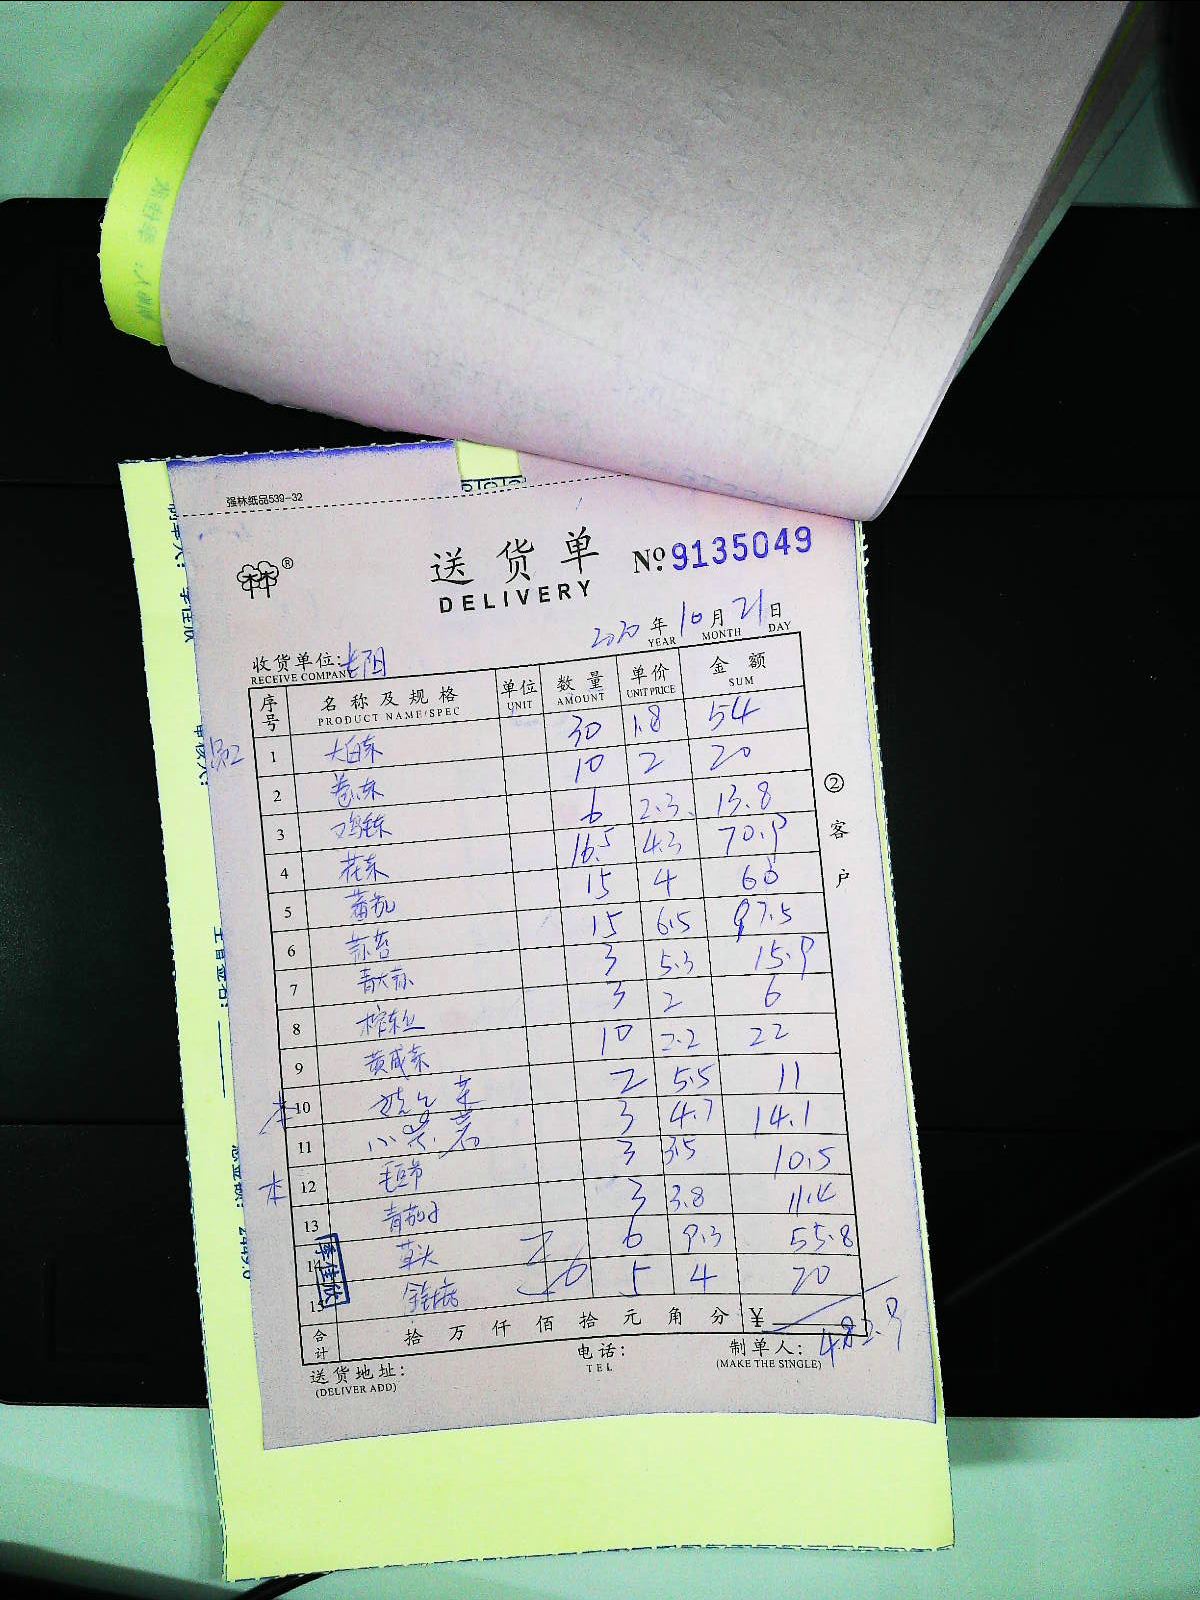 强林纸品539-32
送货单 №9135049
DELIVERY
2020年10月21日
YEAR MONTH DAY
收货单位:长阳
RECEIVE COMPANY
序号 名称及规格 单位 数量 单价 金额
PRODUCT NAME/SPEC UNIT AMOUNT UNIT PRICE SUM
1 大白菜 30 1.8 54
2 卷心菜 10 2 20
3 鸡毛菜 6 2.3 13.8
4 花菜 16.5 4.3 70.9
5 蕃茄 15 4 60
6 蒜苔 15 6.5 97.5
7 青大蒜 3 5.3 15.9
8 榨菜丝 3 2 6
9 黄咸菜 10 2.2 22
10 2 5.5 11
11 3 4.7 14.1
12 毛豆节 3 3.5 10.5
13 青茄子 3 3.8 11.4
14 草头 6 9.3 55.8
15 金针菇 5 4 20
李佳欣
合计 拾万仟佰拾元角分 ¥ 482.9
送货地址: 电话: 制单人:
(DELIVER ADD) TEL (MAKE THE SINGLE)
②客户